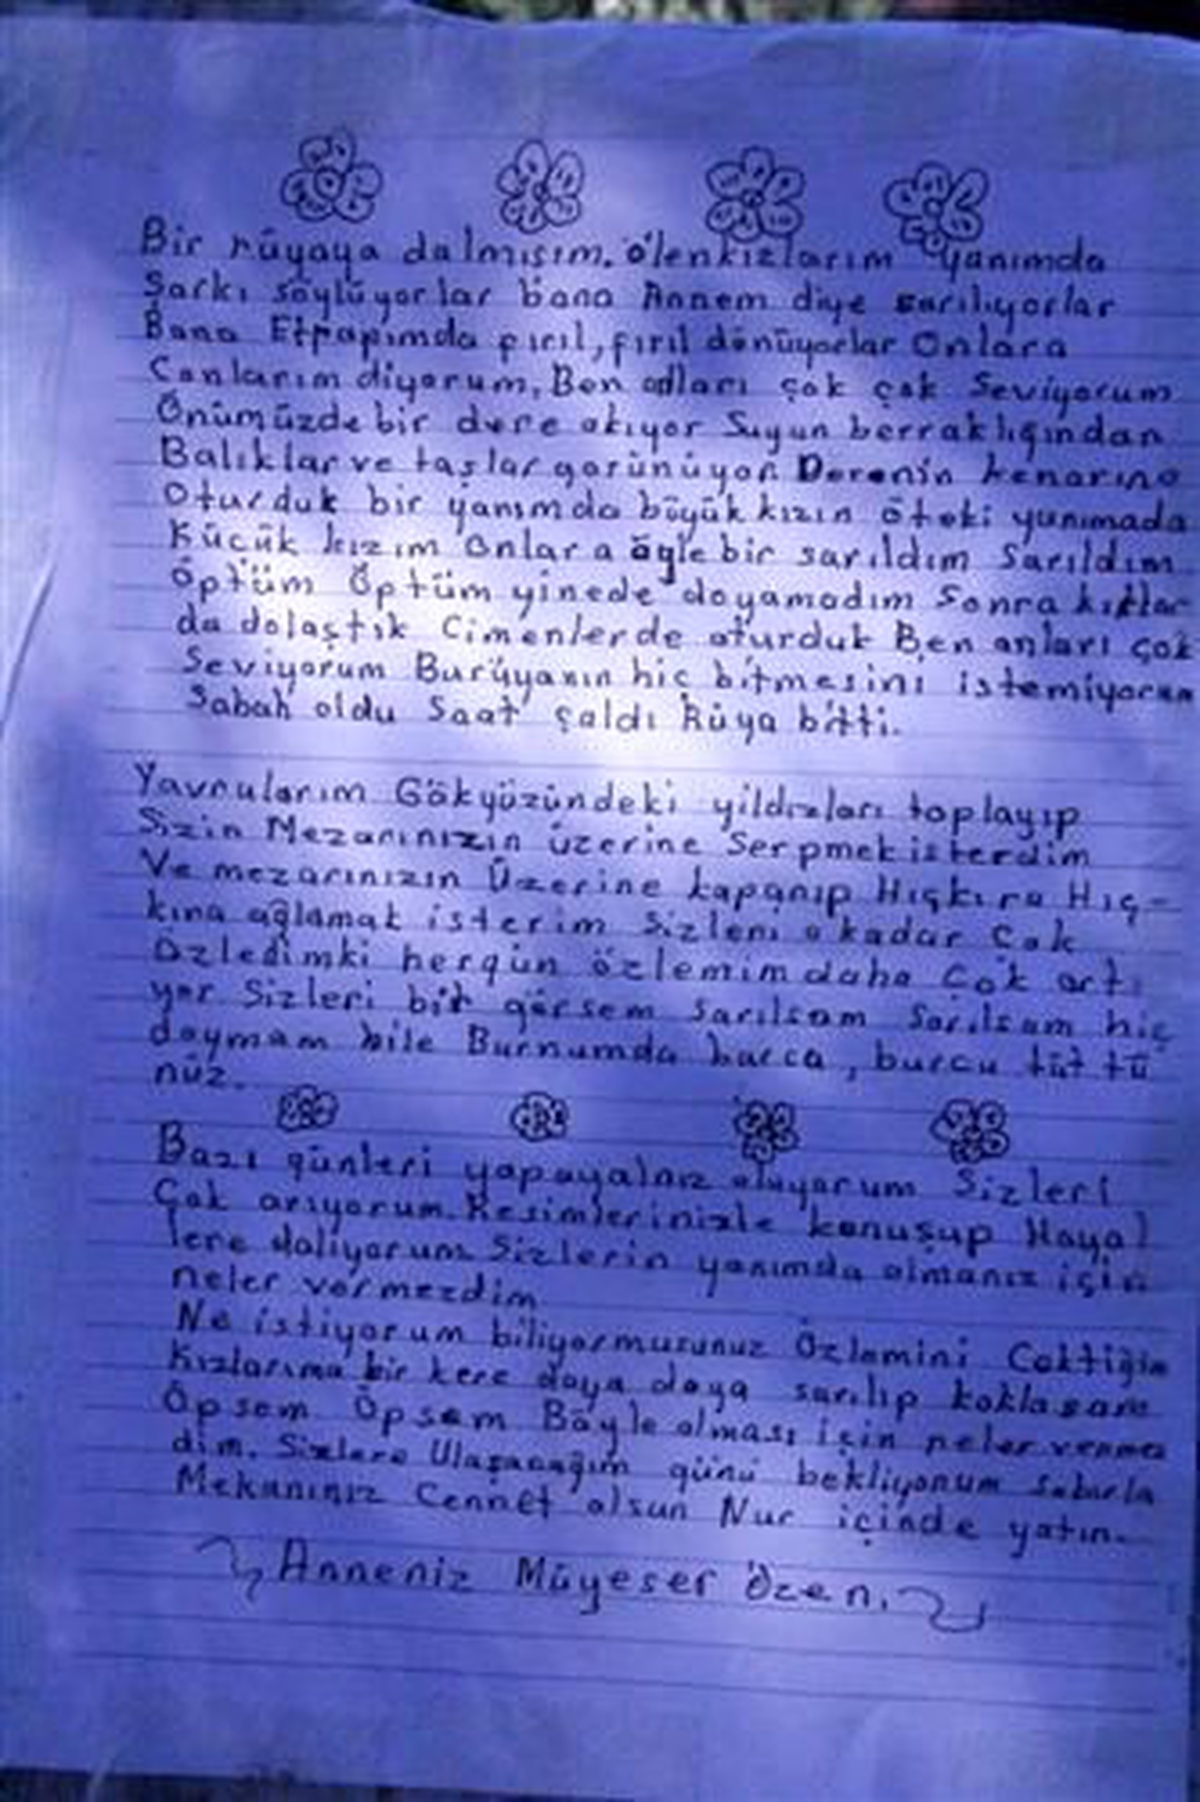 Bir rüyaya dalmışım. ölenkızlarım yanımda
Şarkı söylüyorlar bana Annem diye sarılıyorlar
Bana Etrapımda pırıl, fırıl dönüyorlar Onlara
Canlarım diyorum. Ben onları çok çok Seviyorum
Önümüzde bir dere akıyor Suyun berraklığından
Balıklar ve taşlar görünüyor. Derenin kenarına
Oturduk bir yanımda büyük kızın öteki yanımada
Küçük kızım onlara öyle bir sarıldım Sarıldım
Öptüm Öptüm yinede doyamadım Sonra kırlar
da dolaştık Çimenlerde oturduk Ben onları çok
Seviyorum Burüyanın hiç bitmesini istemiyorum
Sabah oldu Saat çaldı Rüya bitti.
Yavrularım Gökyüzündeki yildızları toplayıp
Sizin Mezarınızın üzerine Serpmek isterdim
Ve mezarınızın Üzerine kapanıp Hıçkıra Hıç-
kıra ağlamak isterim Sizleri o kadar Çok
Özledimki hergün özlemim daha Çok artı
yor Sizleri bir görsem Sarılsam Sarılsam hiç
doymam bile Burnumda burcu, burcu tüttü
nüz.
Bazı günleri yapayalnız oluyorum Sizleri
Çok arıyorum. Resimlerinizle konuşup Hayal
lere daliyorum Sizlerin yanımda olmanız için
neler vermezdim
Ne istiyorum biliyormusunuz Özlemini Çektiğim
Kızlarıma bir kere doya doya sarılıp koklasam
Öpsem Öpsem Böyle olması için neler vermez
dim. Sizlere Ulaşacağım günü bekliyorum Sabırla
Mekanınız Cennet olsun Nur içinde yatın.
Anneniz Müyeser Özen.